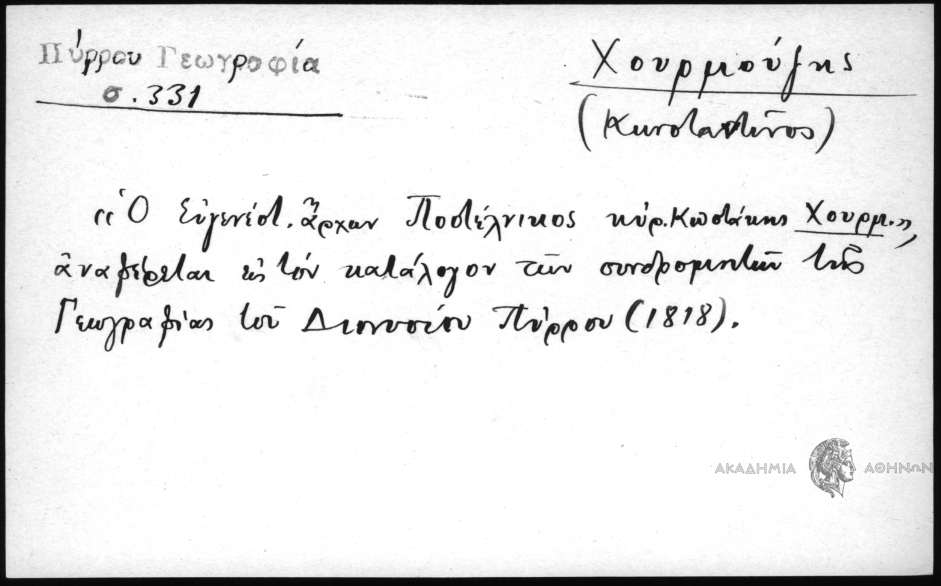 Πύρρου Γεωγραφία
σ. 331
Χουρμούζης
(Κωνσταντῖνος)
«Ὁ Εὐγενέστ. ἄρχων Ποστέλνικος κύρ. Κωστάκης Χουρμ.»,
ἀναφέρεται εἰς τὸν κατάλογον τῶν συνδρομητῶν τῆς
Γεωγραφίας τοῦ Διονυσίου Πύρρου (1818).
ΑΚΑΔΗΜΙΑ ΑΘΗΝΩΝ